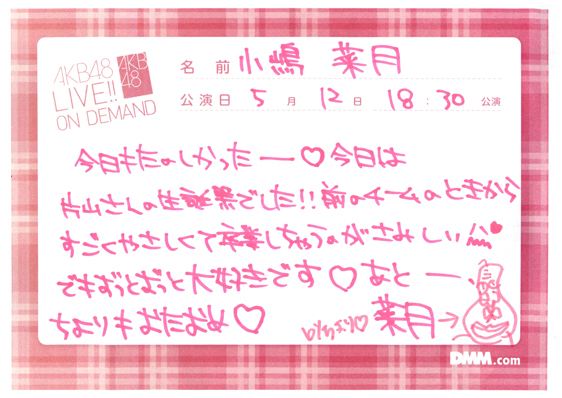 AKB48
LIVE!!
ON DEMAND
AKB
48
名 前 小嶋 菜月
公演日 5 月 12 日 18 : 30 公演
今日もたのしかったー♡今日は
片山さんの生誕祭でした!!前のチームのときから
すごくやさしくて卒業しちゃうのがさみしい
でもずっとずっと大好きです♡あとー、
ちよりもおたおめ♡
byちより♡ 菜月→
DMM.com